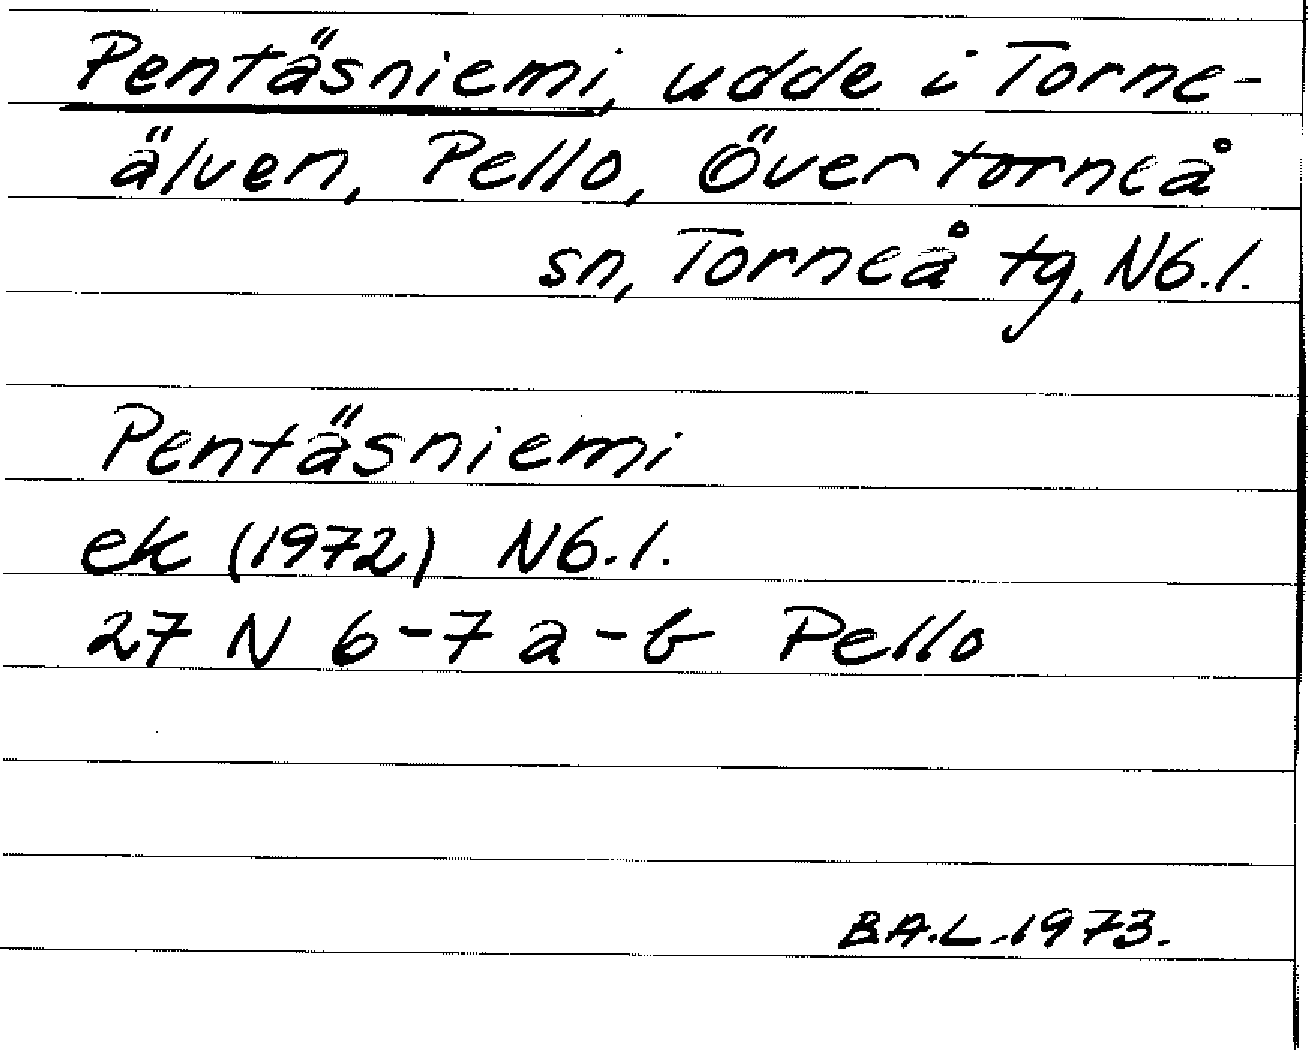 Pentäsniemi, udde i Torne-
älven, Pello, Övertorneå
sn, Torneå tg, N6.1.
Pentäsniemi
ek (1972) N6.1.
27 N 6-7 a-b Pello
B.A.L. 1973.